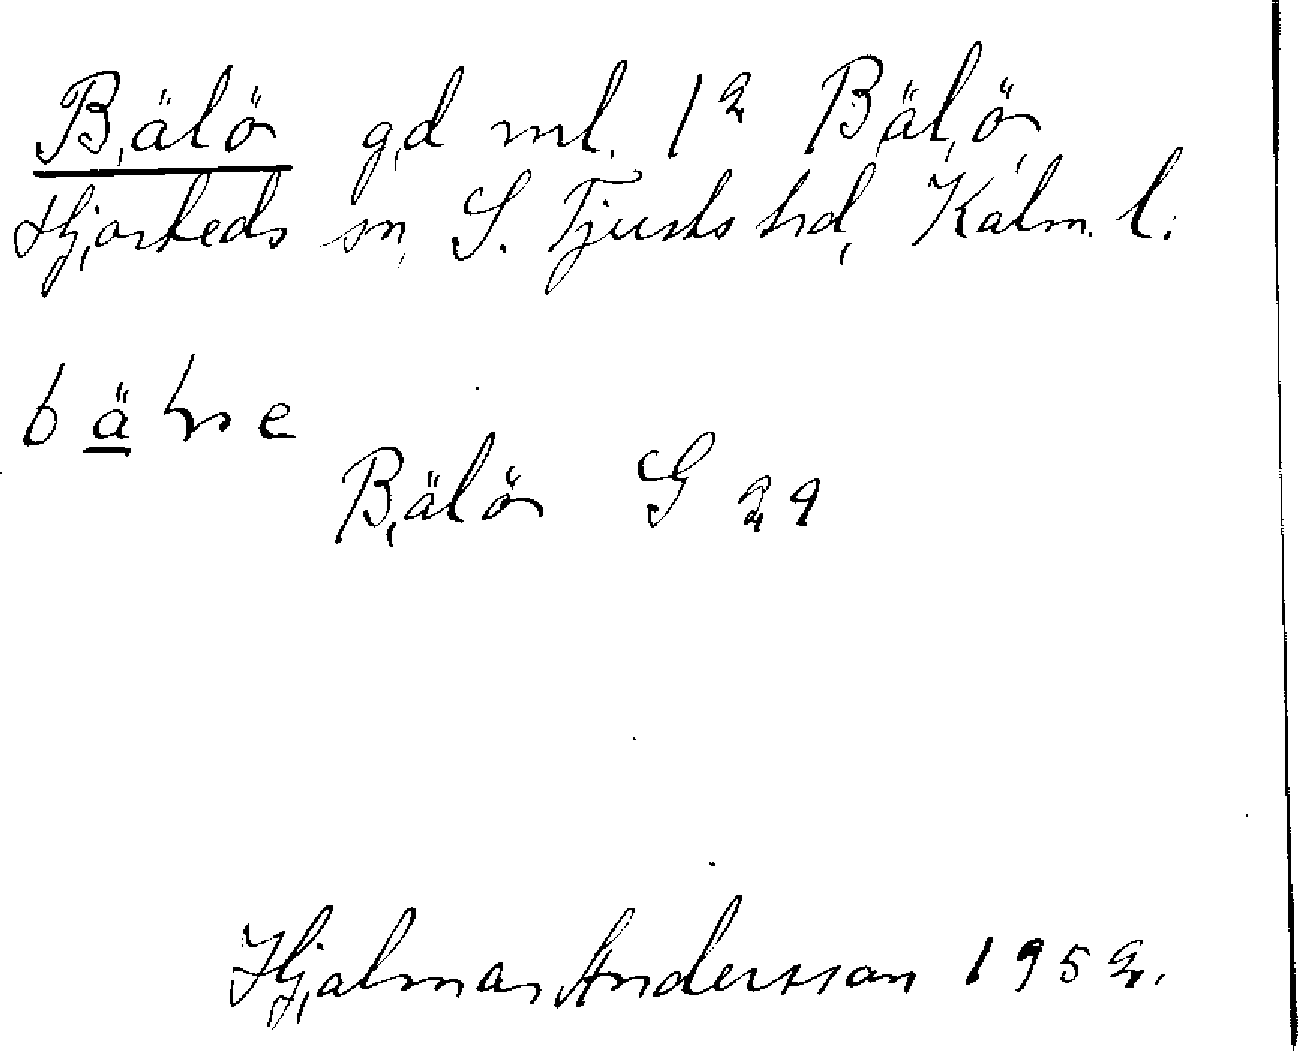 Bälö gd ml. 1² Bälö,
Hjorteds sn, S. Tjusts hd, Kalm. l.
Bälö G 29
Hjalmar Andersson 1952.